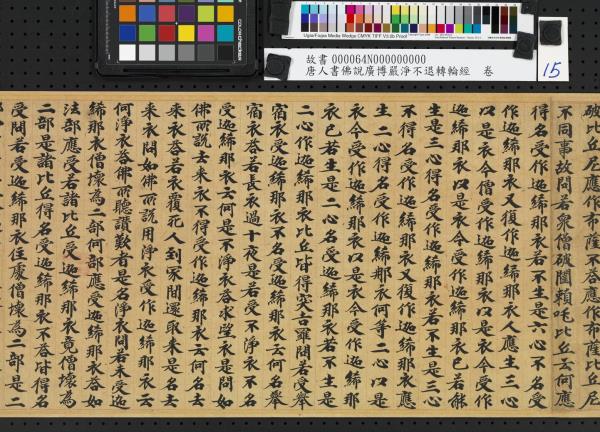 故書 000064N000000000
唐人書佛說廣博嚴淨不退轉輪經 卷
15
Ugra/Fogra Media Wedge CMYK TIFF V3.0b Proof
破比丘尼應作布薩不荅應作布薩比丘尼
不同事故問若衆僧破闥賴吒比丘云何應
得名受作迦絺那衣若不生是六心不名受
作迦絺那衣又復作迦絺那衣人應生三心
以是衣今僧受作迦絺那衣以是衣今受作
迦絺那衣以是衣今受作迦絺那衣已若能
生是三心得名受作迦絺那衣若不生是三心
不得名受作迦絺那衣又復作迦絺那衣應
生二心得名受作迦絺那衣何等二心以是
衣今受作迦絺那衣以是衣今受作迦絺那
衣已若生是二心名受迦絺那衣若不生是
二心作迦絺那衣比丘皆得突吉羅問若受舉
宿衣受迦絺那衣不名受迦絺那衣云何名舉
宿衣荅若長衣過十夜是若受不淨衣不名
受迦絺那衣云何是不淨衣荅求望衣是問如
佛所說去來衣不得受作迦絺那衣云何名去
來衣荅若衣覆死人到冢間還取來是名去
來衣問如佛所說用淨衣受作迦絺那衣云
何淨衣荅佛所聽讚歎者是名淨衣問若未受迦
絺那衣僧壞為二部何部應受迦絺那衣荅如
法部應受若諸比丘受迦絺那衣竟僧壞為
二部是諸比丘得名受迦絺那衣不荅皆得名
受問若受迦絺那衣住處僧壞為二部是二